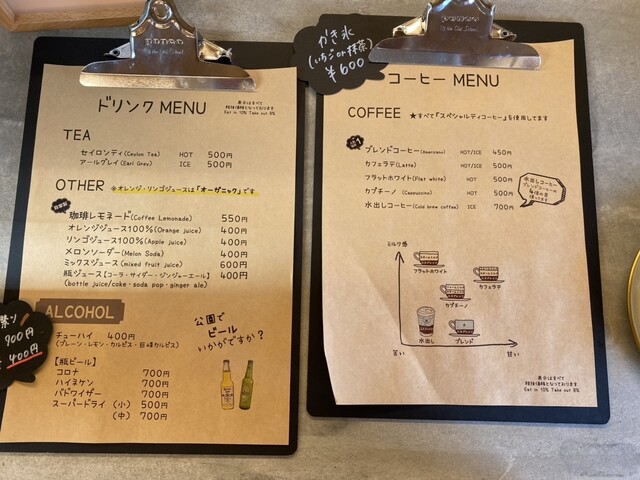 ドリンク MENU
表示はすべて
税抜価格となっております
Eat in 10% Take out 8%
TEA
セイロンティ(Ceylon Tea) HOT 500円
アールグレイ(Earl Grey) ICE 500円
OTHER ※オレンジ・リンゴジュースは「オーガニック」です
自家製
珈琲レモネード(Coffee Lemonade) 550円
オレンジジュース100%(Orange juice) 400円
リンゴジュース100%(Apple juice) 400円
メロンソーダー(Melon Soda) 400円
ミックスジュース(mixed fruit juice) 600円
瓶ジュース【コーラ・サイダー・ジンジャーエール】 400円
(bottle juice/coke・soda pop・ginger ale)
ALCOHOL
チューハイ 400円
(プレーン・レモン・カルピス・巨峰カルピス)
【瓶ビール】
コロナ 700円
ハイネケン 700円
バドワイザー 700円
スーパードライ (小) 500円
(中) 700円
公園で
ビール
いかがですか?
900円
400円
かき氷
(いちご or 抹茶)
¥600
コーヒー MENU
COFFEE ★すべて「スペシャルティコーヒー」を使用してます
ブレンドコーヒー(Americano) HOT/ICE 450円
カフェラテ(Latte) HOT/ICE 500円
フラットホワイト(Flat white) HOT 500円
カプチーノ (Cappuccino) HOT 500円
水出しコーヒー(Cold brew coffee) ICE 700円
水出しコーヒー
ブレンドコーヒーの
4倍の豆
使ってます
ミルク感
フラットホワイト
カフェラテ
カプチーノ
水出し
ブレンド
苦い
甘い
表示はすべて
税抜価格となっております
Eat in 10% Take out 8%